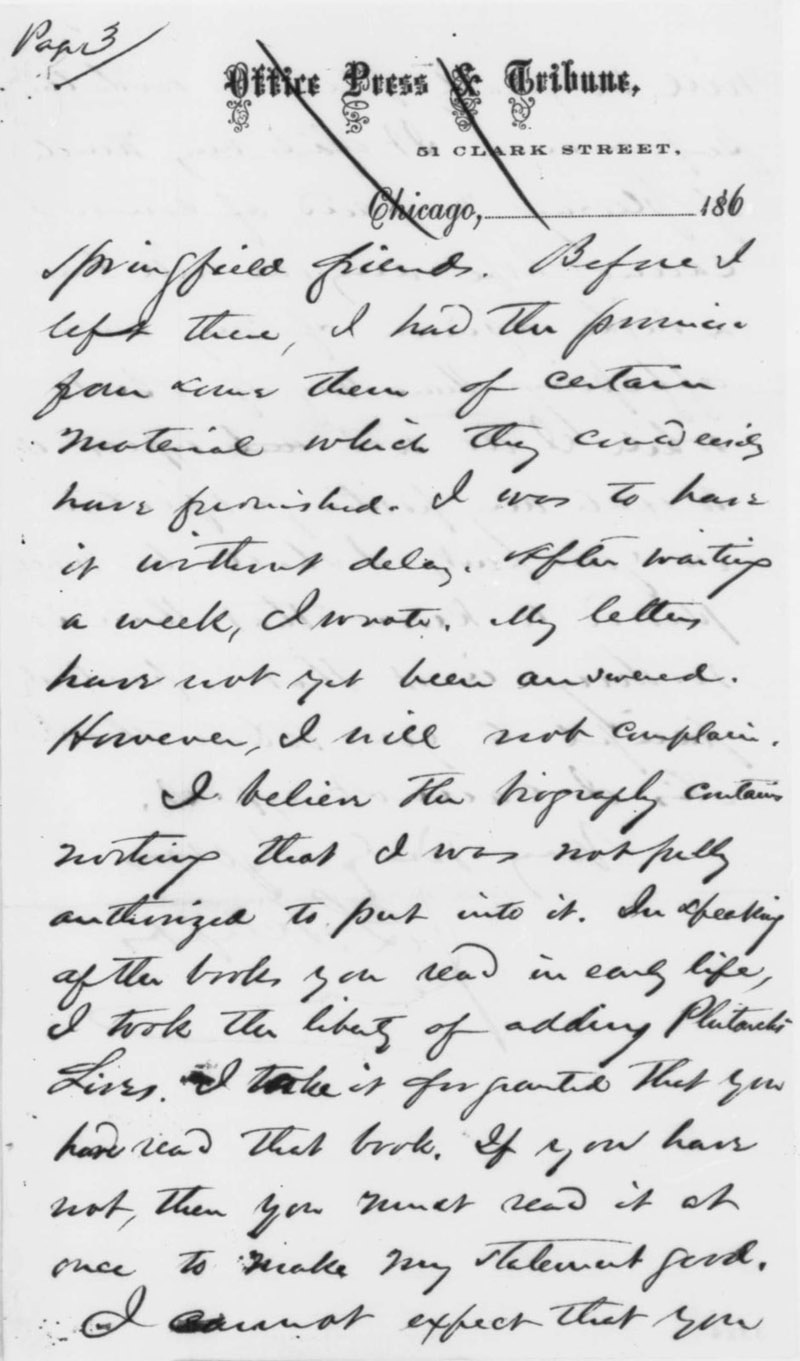 Page 3
Office Press & Tribune,
51 CLARK STREET.
Chicago, 186
Springfield friends. Before I
left there, I had the promise
from some them of certain
material which they could easily
have furnished. I was to have
it without delay. After waiting
a week, I wrote. My letters
have not yet been answered.
However, I will not complain.
I believe the biography contains
nothing that I was not fully
authorized to put into it. In speaking
of the books you read in early life,
I took the liberty of adding Plutarch's
Lives. I take it for granted that you
had read that book. If you have
not, then you must read it at
once to make my statement good.
I cannot expect that you